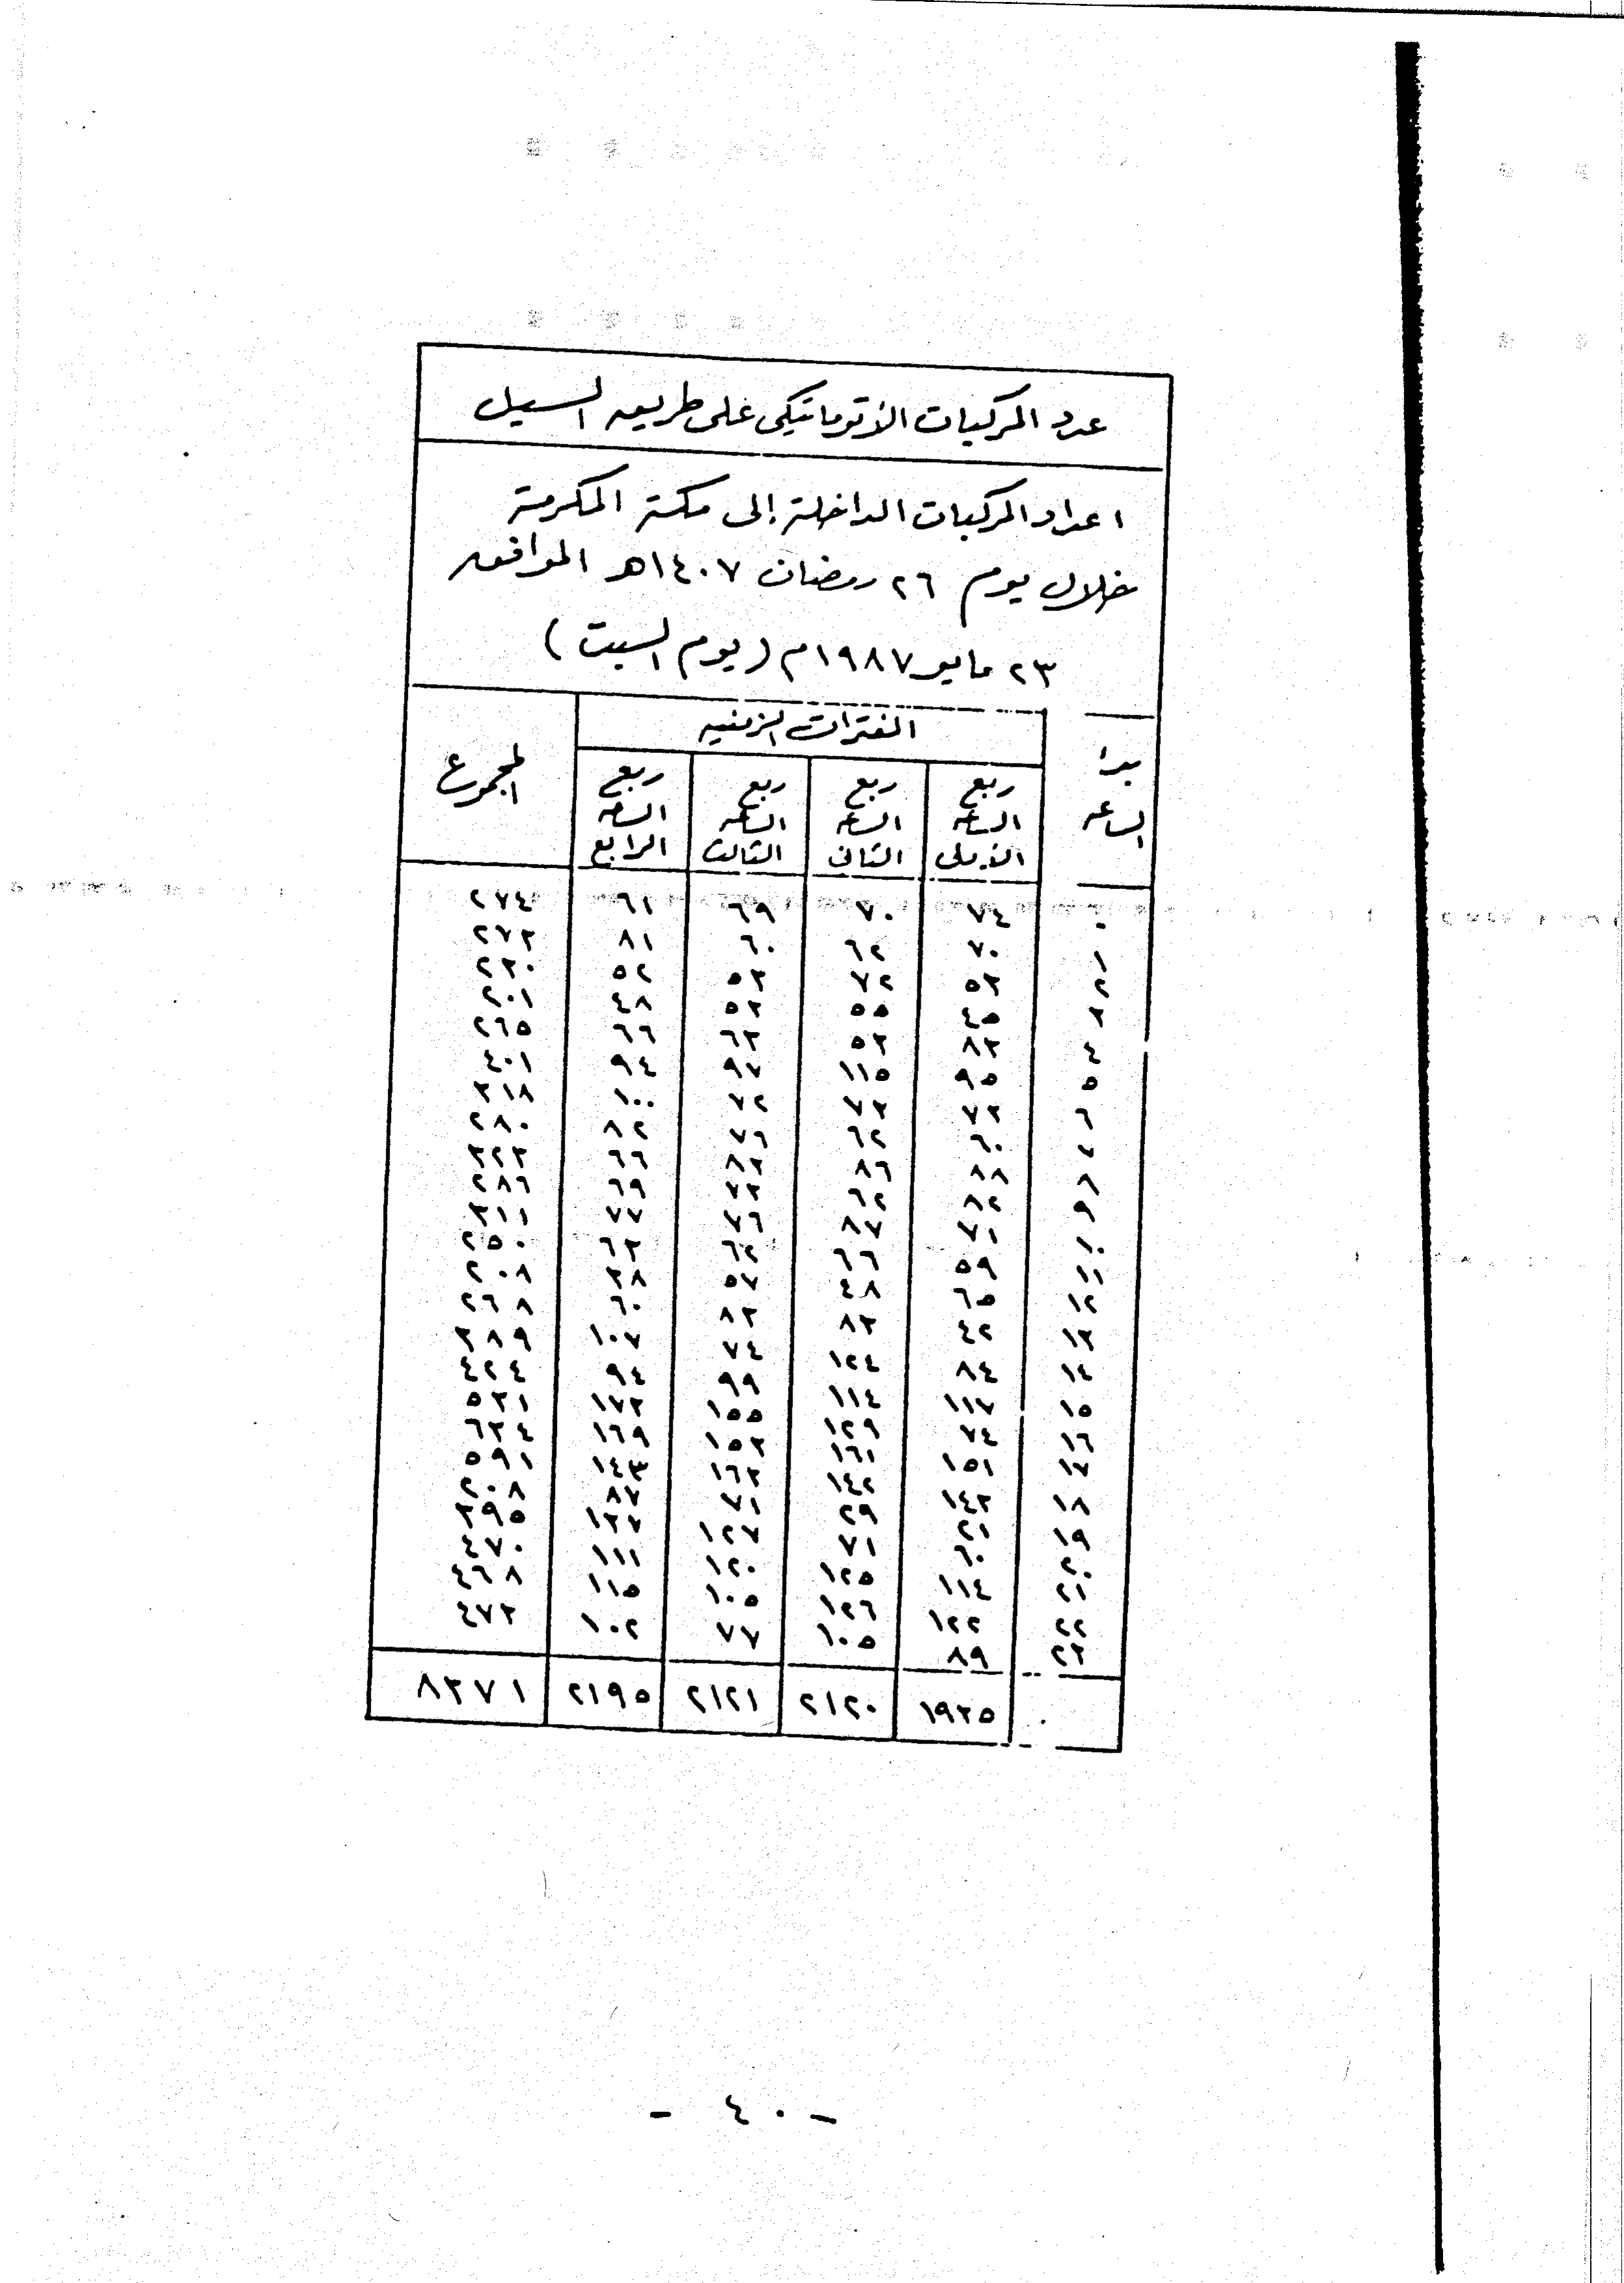 عدد المركبات الأتوماتيكى على طريق السيل
اعداد المركبات الداخلة إلى مكة المكرمة
خلال يوم ٢٦ رمضان ١٤٠٧هـ الموافق
٢٣ مايو ١٩٨٧م (يوم السبت)
بدا الساعه الفترات الزمنيه المجموع
ربع الساعه الأولى ربع الساعه الثانى ربع الساعه الثالث ربع الساعه الرابع
٠ ٧٤ ٧٠ ٦٩ ٦١ ٢٧٤
١ ٧٠ ٦٢ ٦٠ ٨١ ٢٧٣
٢ ٥٣ ٧٢ ٥٣ ٥٢ ٢٣٠
٣ ٤٥ ٥٥ ٥٣ ٤٨ ٢٠١
٤ ٨٣ ٥٣ ٦٣ ٦٦ ٢٦٥
٥ ٩٥ ١١٥ ٩٧ ٩٤ ٤٠١
٦ ٧٣ ٧٣ ٧٢ ١٠٠ ٣١٨
٧ ٦٠ ٦٢ ٧٦ ٨٢ ٢٨٠
٨ ٨٨ ٨٦ ٨٣ ٦٦ ٣٢٣
٩ ٨٢ ٦٢ ٧٣ ٦٩ ٢٨٦
١٠ ٧١ ٨٧ ٧٦ ٧٧ ٣١١
١١ ٥٩ ٦٦ ٦٢ ٦٣ ٢٥٠
١٢ ٦٥ ٤٨ ٥٧ ٣٨ ٢٠٨
١٣ ٤٢ ٨٣ ٨٣ ٦٠ ٢٦٨
١٤ ٨٤ ١٢٤ ٧٤ ١٠٧ ٣٨٩
١٥ ١١٧ ١١٤ ٩٩ ٩٤ ٤٢٤
١٦ ٧٤ ١٢٩ ١٥٥ ١٧٣ ٥٣١
١٧ ١٥١ ١٦١ ١٥٣ ١٦٩ ٦٣٤
١٨ ١٤٣ ١٤٢ ١٦٣ ١٤٣ ٥٩١
١٩ ٢١ ٢٩ ٧١ ٨٧ ٢٠٨
٢٠ ٦٠ ٧١ ١٢٧ ١٣٧ ٣٩٥
٢١ ١١٤ ١٢٥ ١٢٠ ١١١ ٤٧٠
٢٢ ١٢٢ ١٢٦ ١٠٥ ١١٥ ٤٦٨
٢٣ ٨٩ ١٠٥ ٧٧ ١٠٢ ٤٧٣
١٩٣٥ ٢١٢٠ ٢١٢١ ٢١٩٥ ٨٣٧١
- ٤٠ -